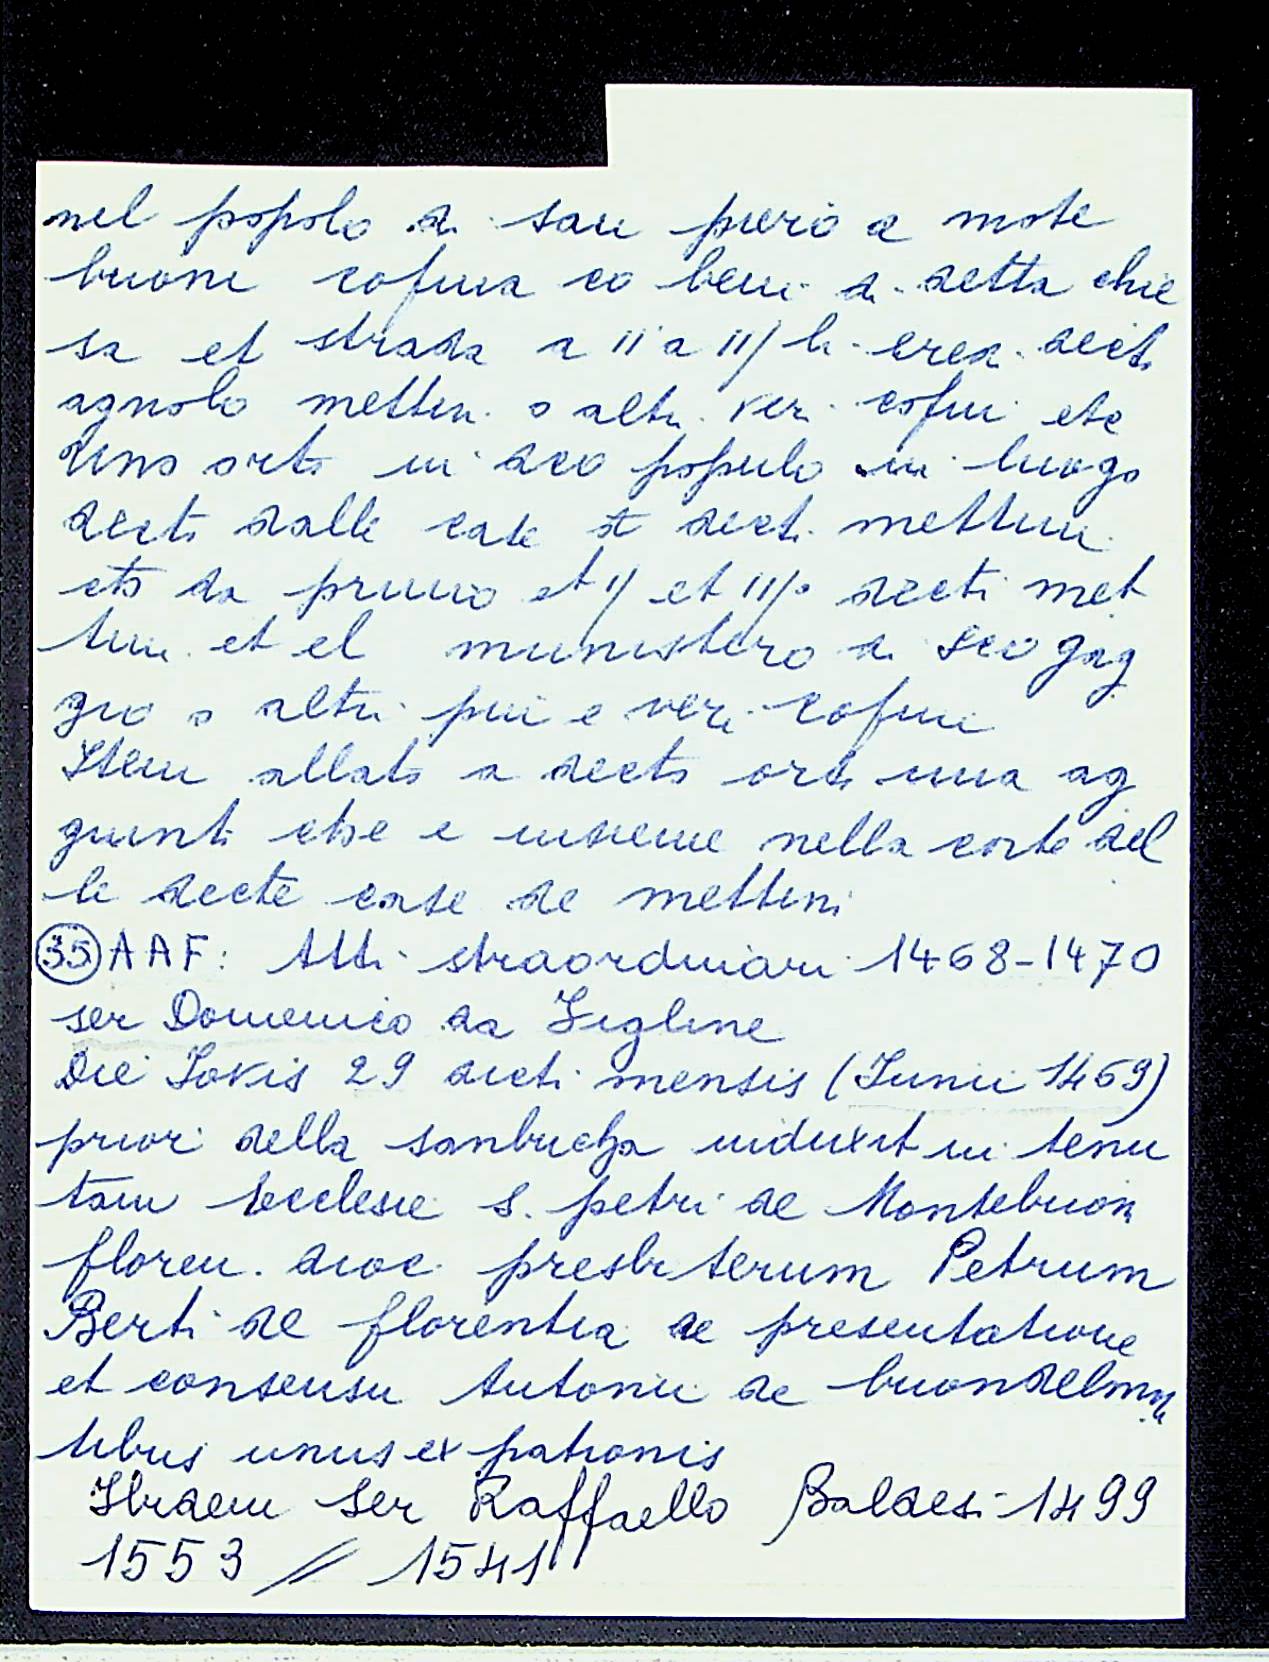 nel popolo di san piero a mote
buoni cofina co beni di detta chie
sa et strada a II a III le erea decto
agnolo mettin. o altri veri cofini etc
Uno orto in dco populo in luogo
decto dalle case di decti mettini
eto da primo et II et III° decti met
tini et el munistero di sco gag
gio o altri piu e veri cofini
Item allato a decto orto una ag
giunti che e insieme nella corte del
le decte case de mettini
(35) AAF: Atti straordinari 1468-1470
ser Domenico da Figline
Die Jovis 29 dicti mensis (Junii 1469)
priori della sanbucha induxit in tenu
tam Ecclesie S. petri de Montebuoni
floren. dioc. presbiterum Petrum
Berti de florentia de presentatione
et consensu Antonii de buondelmon
tibus unus ex patronis
Ibidem Ser Raffaello Baldesi 1499
1553 // 1541